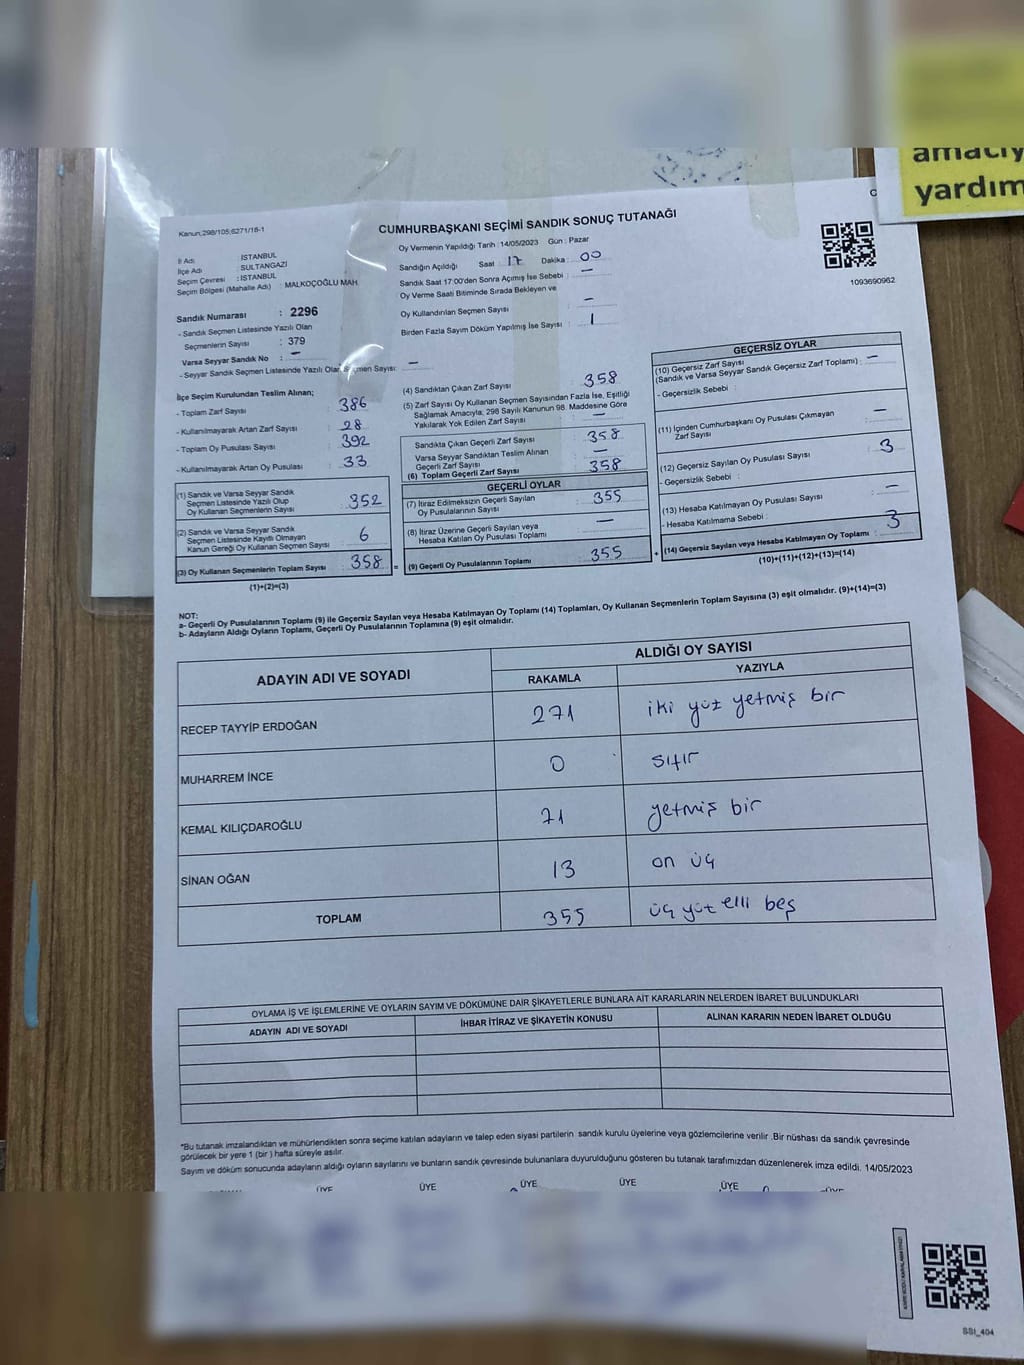 amacıy
yardım
Kanun;298/105;6271/18-1
CUMHURBAŞKANI SEÇİMİ SANDIK SONUÇ TUTANAĞI
Oy Vermenin Yapıldığı Tarih : 14/05/2023 Gün : Pazar
İl Adı : İSTANBUL
İlçe Adı : SULTANGAZİ
Seçim Çevresi : İSTANBUL
Seçim Bölgesi (Mahalle Adı) : MALKOÇOĞLU MAH.
Sandığın Açıldığı Saat : 17 Dakika : 00
Sandık Saat 17:00'den Sonra Açımış İse Sebebi : —
Oy Verme Saati Bitiminde Sırada Bekleyen ve
Oy Kullandırılan Seçmen Sayısı : —
Birden Fazla Sayım Döküm Yapılmış İse Sayısı : 1
1093690962
Sandık Numarası : 2296
- Sandık Seçmen Listesinde Yazılı Olan
Seçmenlerin Sayısı : 379
Varsa Seyyar Sandık No : —
- Seyyar Sandık Seçmen Listesinde Yazılı Olan Seçmen Sayısı: —
İlçe Seçim Kurulundan Teslim Alınan;
- Toplam Zarf Sayısı : 386
- Kullanılmayarak Artan Zarf Sayısı : 28
- Toplam Oy Pusulası Sayısı : 392
- Kullanılmayarak Artan Oy Pusulası : 33
(1) Sandık ve Varsa Seyyar Sandık
Seçmen Listesinde Yazılı Olup
Oy Kullanan Seçmenlerin Sayısı : 352
(2) Sandık ve Varsa Seyyar Sandık
Seçmen Listesinde Kayıtlı Olmayan
Kanun Gereği Oy Kullanan Seçmen Sayısı : 6
(3) Oy Kullanan Seçmenlerin Toplam Sayısı : 358
(1)+(2)=(3)
(4) Sandıktan Çıkan Zarf Sayısı : 358
(5) Zarf Sayısı Oy Kullanan Seçmen Sayısından Fazla İse, Eşitliği
Sağlamak Amacıyla, 298 Sayılı Kanunun 98. Maddesine Göre
Yakılarak Yok Edilen Zarf Sayısı : —
Sandıkta Çıkan Geçerli Zarf Sayısı : 358
Varsa Seyyar Sandıktan Teslim Alınan
Geçerli Zarf Sayısı : —
(6) Toplam Geçerli Zarf Sayısı : 358
GEÇERLİ OYLAR
(7) İtiraz Edilmeksizin Geçerli Sayılan
Oy Pusulalarının Sayısı : 355
(8) İtiraz Üzerine Geçerli Sayılan veya
Hesaba Katılan Oy Pusulası Toplamı : —
= (9) Geçerli Oy Pusulalarının Toplamı : 355
GEÇERSİZ OYLAR
(10) Geçersiz Zarf Sayısı
(Sandık ve Varsa Seyyar Sandık Geçersiz Zarf Toplamı) : —
- Geçersizlik Sebebi :
(11) İçinden Cumhurbaşkanı Oy Pusulası Çıkmayan
Zarf Sayısı : —
(12) Geçersiz Sayılan Oy Pusulası Sayısı : 3
- Geçersizlik Sebebi :
(13) Hesaba Katılmayan Oy Pusulası Sayısı : —
- Hesaba Katılmama Sebebi :
+ (14) Geçersiz Sayılan veya Hesaba Katılmayan Oy Toplamı : 3
(10)+(11)+(12)+(13)=(14)
NOT:
a- Geçerli Oy Pusulalarının Toplamı (9) ile Geçersiz Sayılan veya Hesaba Katılmayan Oy Toplamı (14) Toplamları, Oy Kullanan Seçmenlerin Toplam Sayısına (3) eşit olmalıdır. (9)+(14)=(3)
b- Adayların Aldığı Oyların Toplamı, Geçerli Oy Pusulalarının Toplamına (9) eşit olmalıdır.
ADAYIN ADI VE SOYADI ALDIĞI OY SAYISI
RAKAMLA YAZIYLA
RECEP TAYYİP ERDOĞAN 271 iki yüz yetmiş bir
MUHARREM İNCE 0 sıfır
KEMAL KILIÇDAROĞLU 71 yetmiş bir
SİNAN OĞAN 13 on üç
TOPLAM 355 üç yüz elli beş
OYLAMA İŞ VE İŞLEMLERİNE VE OYLARIN SAYIM VE DÖKÜMÜNE DAİR ŞİKAYETLERLE BUNLARA AİT KARARLARIN NELERDEN İBARET BULUNDUKLARI
ADAYIN ADI VE SOYADI İHBAR İTİRAZ VE ŞİKAYETİN KONUSU ALINAN KARARIN NEDEN İBARET OLDUĞU
*Bu tutanak imzalandıktan ve mühürlendikten sonra seçime katılan adayların ve talep eden siyasi partilerin sandık kurulu üyelerine veya gözlemcilerine verilir .Bir nüshası da sandık çevresinde
görülecek bir yere 1 (bir ) hafta süreyle asılır.
Sayım ve döküm sonucunda adayların aldığı oyların sayılarını ve bunların sandık çevresinde bulunanlara duyurulduğunu gösteren bu tutanak tarafımızdan düzenlenerek imza edildi. 14/05/2023
ÜYE ÜYE ÜYE ÜYE ÜYE ÜYE
SSİ_404